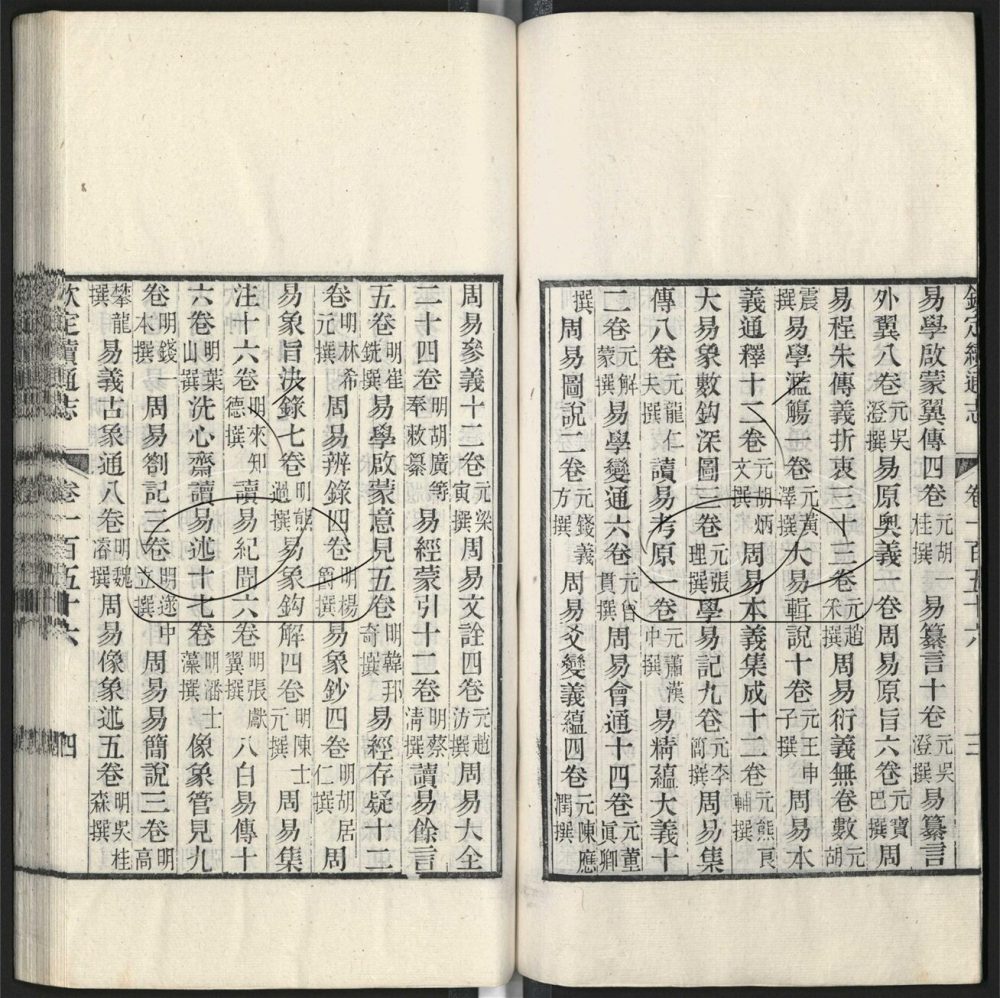 易學啟蒙翼傳四卷元胡一桂撰易纂言十卷元吳澄撰易纂言
外翼八卷元吳澄撰易原奧義一卷周易原旨六卷元寶巴撰周
易程朱傳義折衷三十三卷元趙采撰周易衍義無卷數元胡
震撰易學濫觴一卷元黃澤撰大易輯說十卷元王申子撰周易本
義通釋十二卷元胡炳文撰周易本義集成十二卷元熊良輔撰
大易象數鈎深圖三卷元張理撰學易記九卷元李簡撰周易集
傳八卷元龍仁夫撰讀易考原一卷元蕭漢中撰易精蘊大義十
二卷元解蒙撰易學變通六卷元曾貫撰周易會通十四卷元董真卿
撰周易圖說二卷元錢義方撰周易爻變義蘊四卷元陳應潤撰
欽定續通志 卷一百五十六 三
周易參義十二卷元梁寅撰周易文詮四卷元趙汸撰周易大全
二十四卷明胡廣等奉敕纂易經蒙引十二卷明蔡清撰讀易餘言
五卷明崔銑撰易學啟蒙意見五卷明韓邦奇撰易經存疑十二
卷明林希元撰周易辨錄四卷明楊爵撰易象鈔四卷明胡居仁撰周
易象旨決錄七卷明熊過撰易象鈎解四卷明陳士元撰周易集
注十六卷明來知德撰讀易紀聞六卷明張獻翼撰八白易傳十
六卷明葉山撰洗心齋讀易述十七卷明潘士藻撰像象管見九
卷明錢一本撰周易劄記三卷明逯中立撰周易易簡說三卷明高
攀龍撰易義古象通八卷明魏濬撰周易像象述五卷明吳桂森撰
欽定續通志 卷一百五十六 四